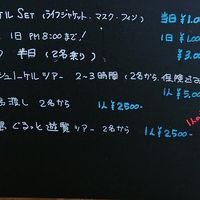 ル SET (ライフジャケット・マスク・フィン) 当日 ¥1.00
1日 PM 8:00まで! 1日 ¥1.00
半日 (2名乗り) ¥3.00
シュノーケルツアー 2-3時間 (2名から、保険込
1人 ¥5,00
渡し 2名から 1人 ¥2500-
ぐるっと遊覧ツアー 2名から 1人 ¥2500-